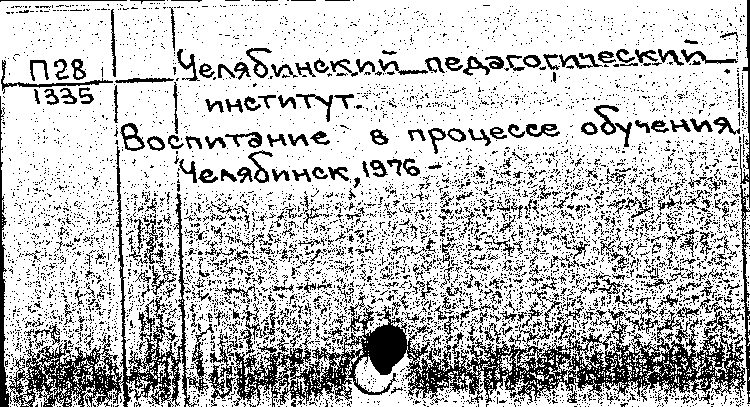 П28
1335
Челябинский педагогический
институт.
Воспитание в процессе обучения
Челябинск, 1976 -